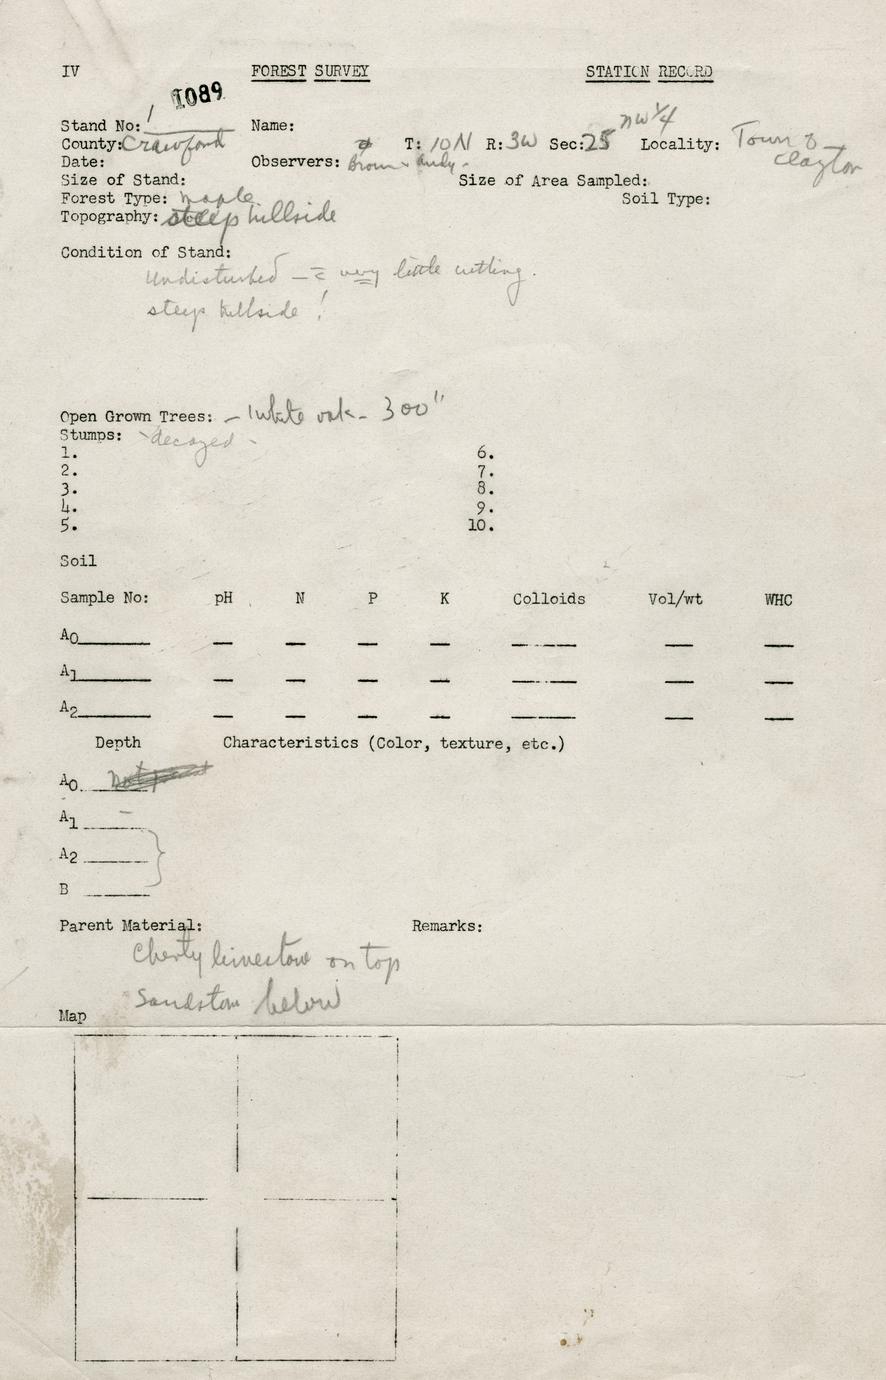 IV FOREST SURVEY STATION RECORD
1089
Stand No: 1 Name: NW 1/4
County: Crawford T: 10N R: 3W Sec: 25 Locality: Town of
Clayton
Date: Observers: Brown
Size of Stand: Size of Area Sampled:
Forest Type: maple Soil Type:
Topography: steep hillside
Condition of Stand:
Undisturbed — c̄ very little cutting.
steep hillside!
Open Grown Trees: - White oak - 300"
Stumps: - decayed -
1. 6.
2. 7.
3. 8.
4. 9.
5. 10.
Soil
Sample No: pH N P K Colloids Vol/wt WHC
A0
A1
A2
Depth Characteristics (Color, texture, etc.)
A0
A1 -
A2
B
Parent Material: Remarks:
Cherty limestone on top
Sandstone below
Map